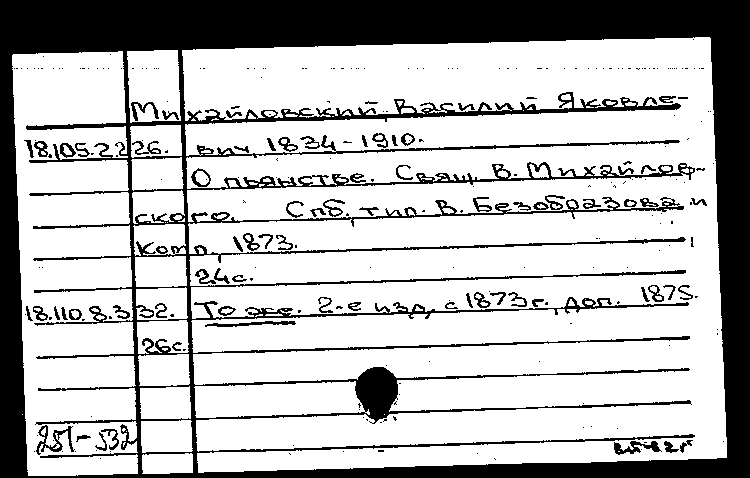 Михайловский, Василий Яковле-
18.105.2.226. вич, 1834-1910.
О пьянстве. Свящ. В. Михайлов-
ского. Спб., тип. В. Безобразова и
Комп., 1873.
24с.
18.110.8.332. То же. 2-е изд., с 1873г., доп. 1875.
26с.
251-532